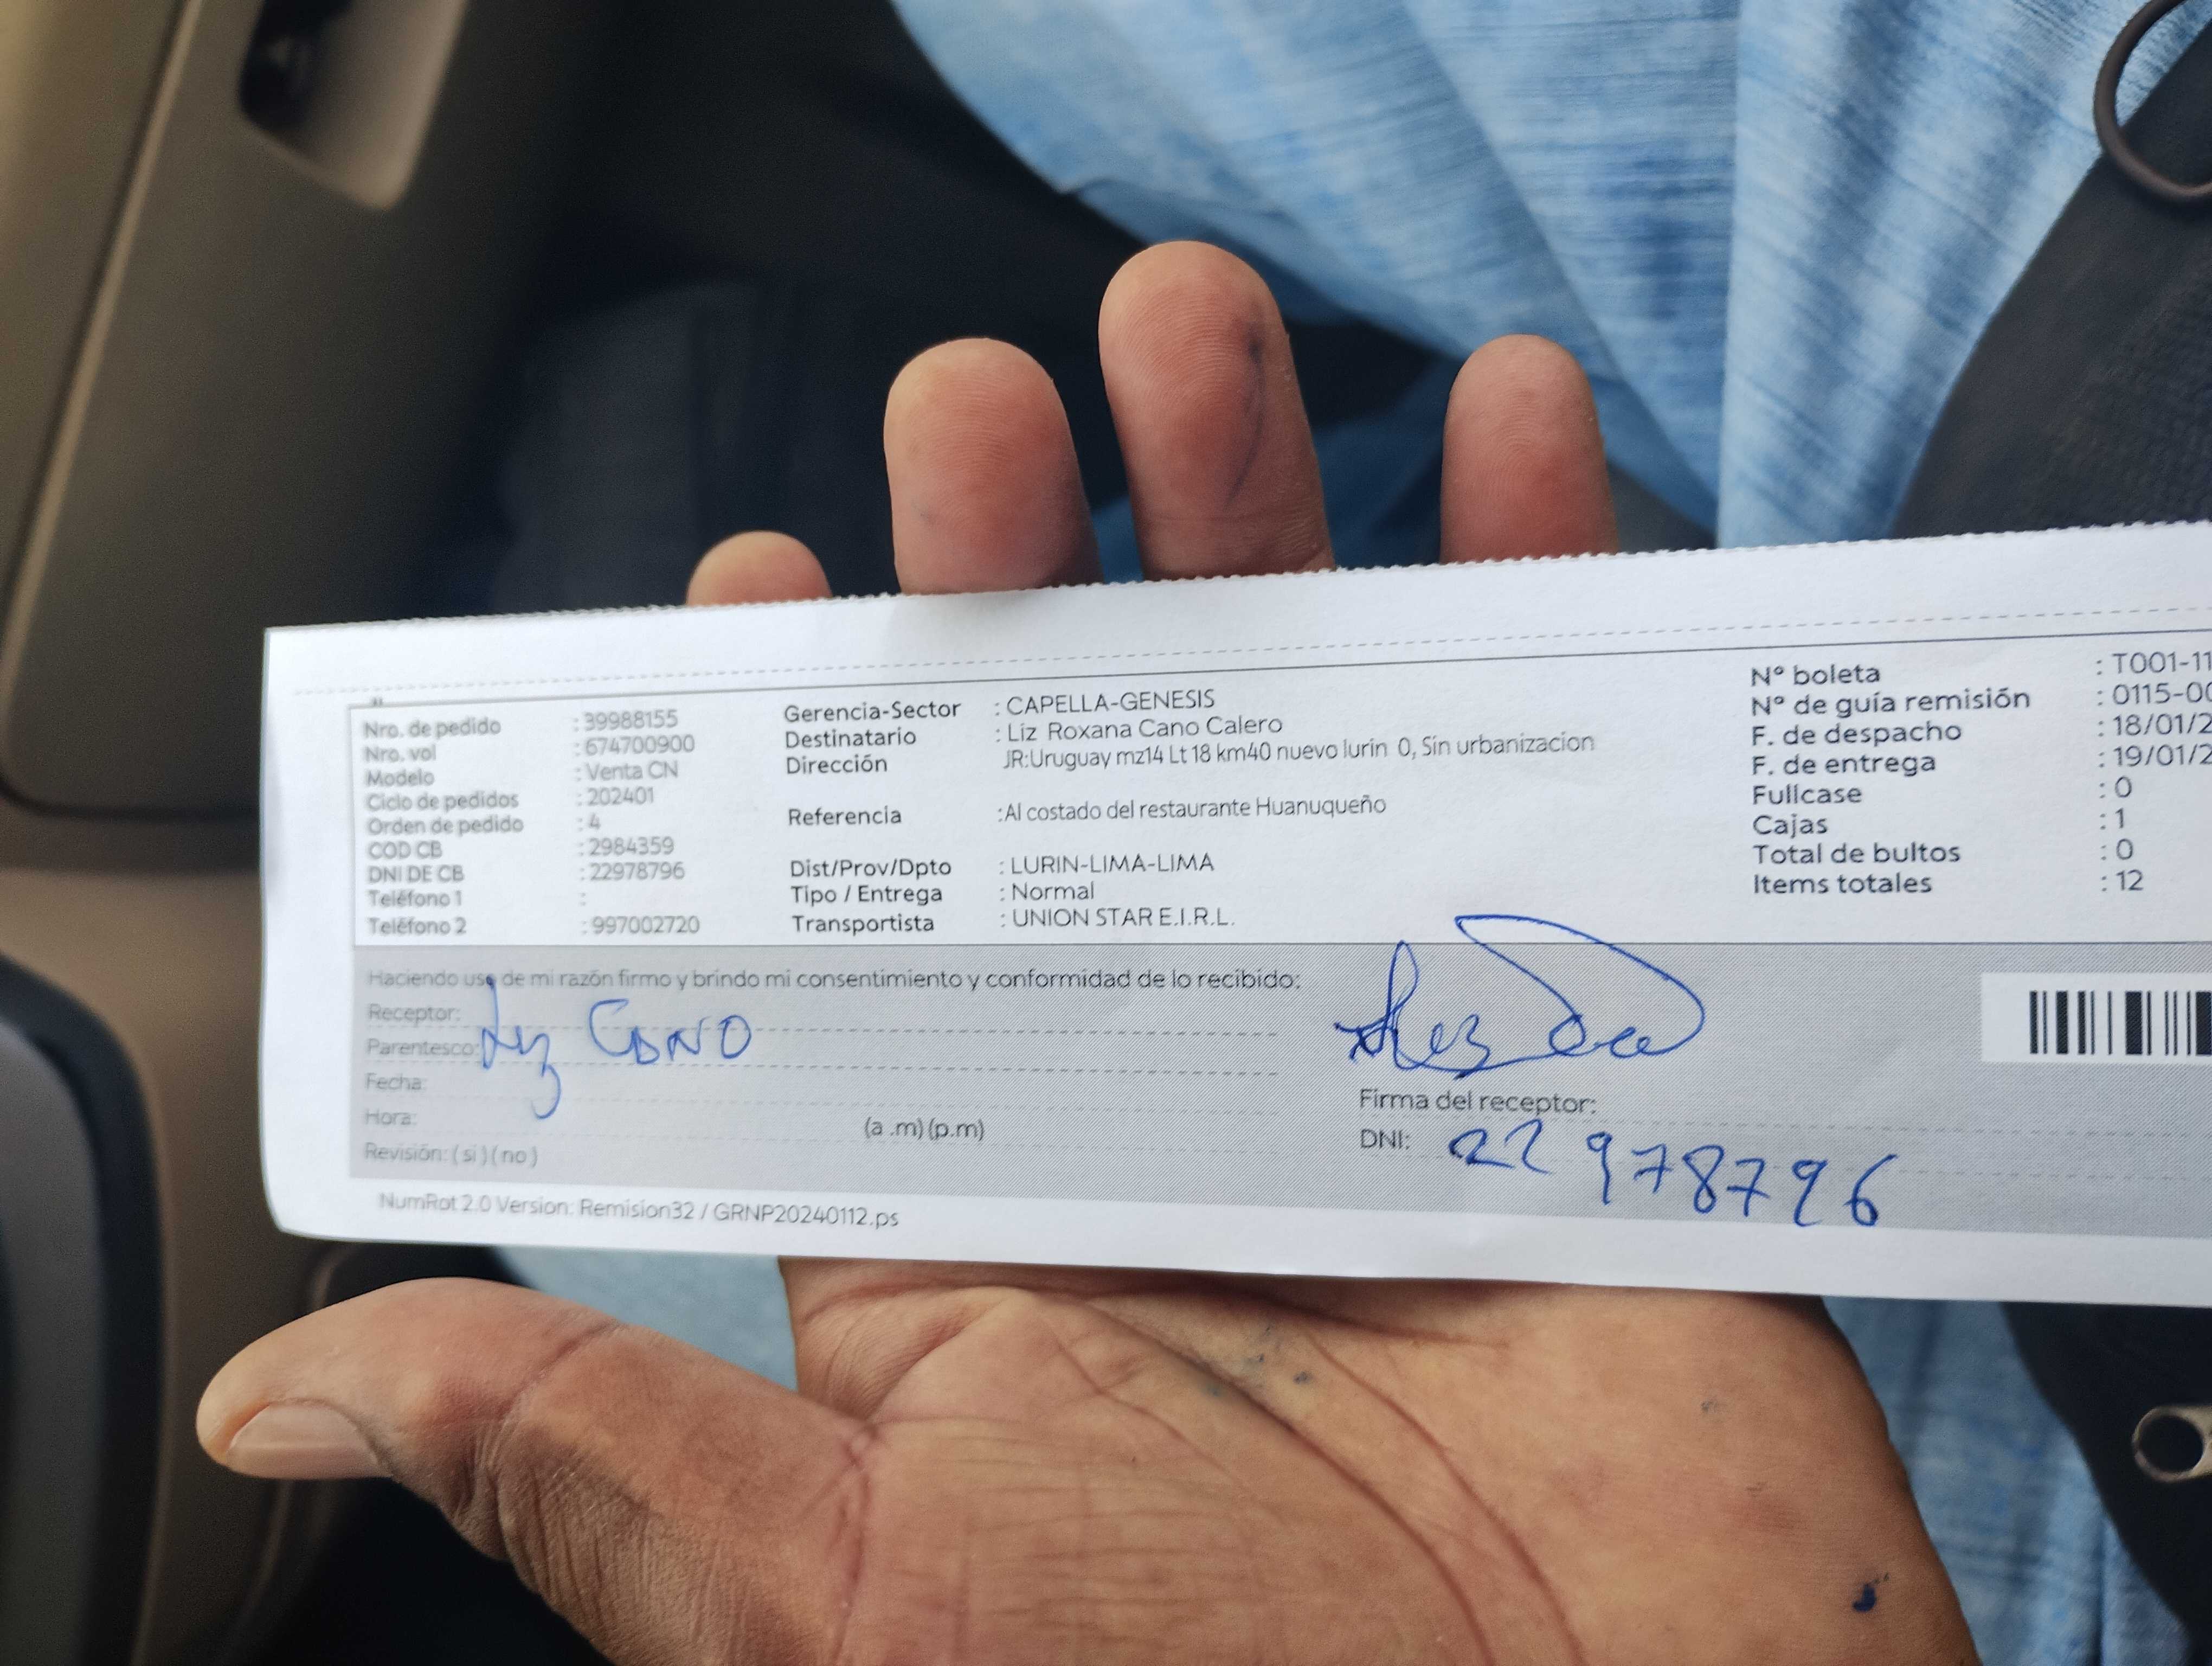 Nro. de pedido : 39988155
Nro. vol : 674700900
Modelo : Venta CN
Ciclo de pedidos : 202401
Orden de pedido : 4
COD CB : 2984359
DNI DE CB : 22978796
Teléfono 1 :
Teléfono 2 : 997002720
Gerencia-Sector : CAPELLA-GENESIS
Destinatario : Liz Roxana Cano Calero
Dirección JR:Uruguay mz14 Lt 18 km40 nuevo lurin 0, Sin urbanizacion
Referencia :Al costado del restaurante Huanuqueño
Dist/Prov/Dpto : LURIN-LIMA-LIMA
Tipo / Entrega : Normal
Transportista : UNION STAR E.I.R.L.
N° boleta : T001-11
N° de guía remisión : 0115-00
F. de despacho : 18/01/2
F. de entrega : 19/01/2
Fullcase : 0
Cajas : 1
Total de bultos : 0
Items totales : 12
Haciendo uso de mi razón firmo y brindo mi consentimiento y conformidad de lo recibido:
Receptor: Liz CANO
Parentesco:
Fecha:
Hora: (a .m) (p.m)
Revisión: ( si ) ( no )
Firma del receptor:
DNI: 22978796
NumRot 2.0 Version: Remision32 / GRNP20240112.ps